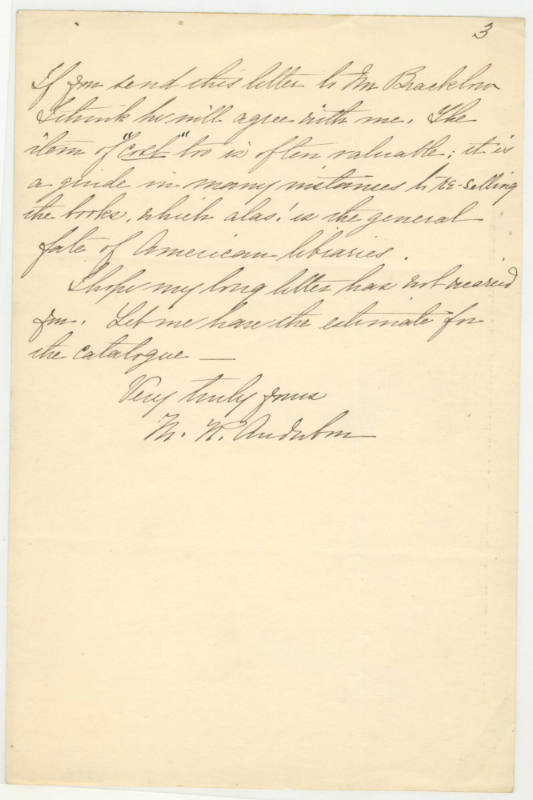 3
If you send this letter to Mr Bracklow
I think he will agree with me. The
item of "cost" too is often valuable; it is
a guide in many instances to re-selling
the books, which alas! is the general
fate of American libraries.
I hope my long letter has not wearied
you. Let me have the estimate for
the catalogue —
Very truly yours
M. R. Audubon